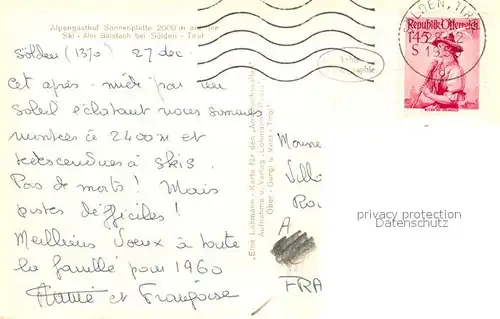 Alpengasthof Sonnenplatte 2000 m auf der
Ski - Alm Gaislach bei Sölden - Tirol
Sölden (1370) 27 dec.
cet après-midi par un
soleil éclatant nous sommes
montées à 2400 m et
redescendues à skis.
Pas de morts! Mais
pistes difficiles!
Meilleurs Voeux à toute
la famille pour 1960
Annie et Françoise
"Eine Lohmann - Karte für den
Aufnahme u. Verlag
Ober - Gurgl u. Vent - Tirol
SÖLDEN, TIROL
Republik Österreich
145
S
privacy protection
Watermark
A
FRA